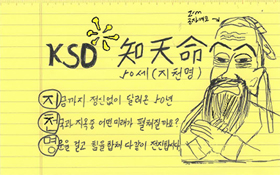 2011
KSD 知天命
50세(지천명)
지금까지 정신없이 달려온 50년
천국과 지옥중 어떤미래가 펼쳐질까요?
명운을 걸고 힘을합쳐 다같이 전진합시다